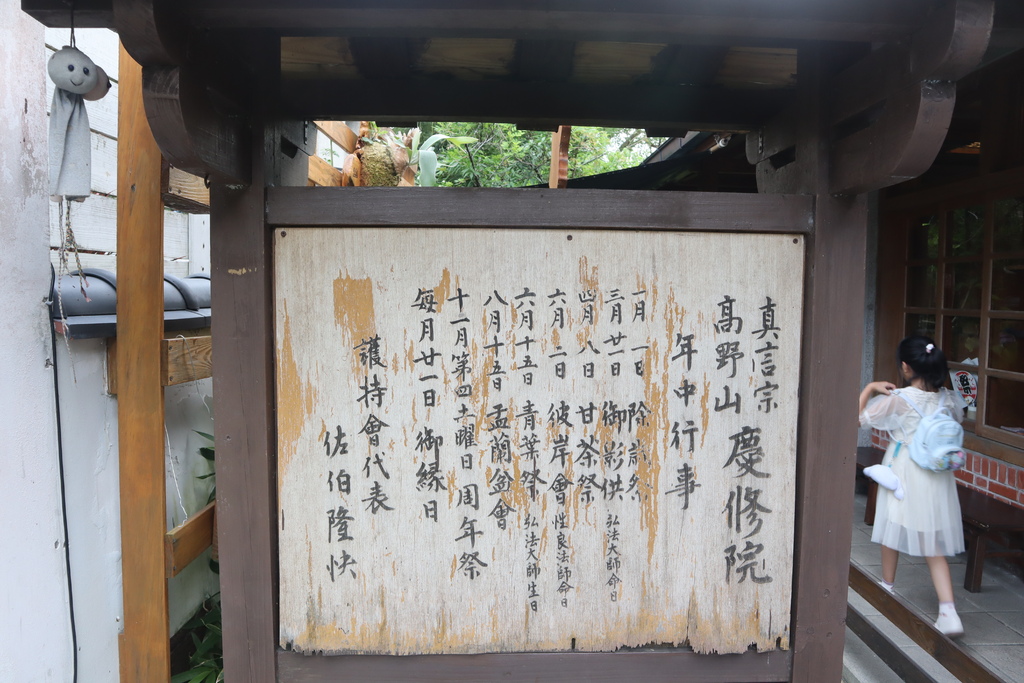 真言宗
高野山 慶修院
年中行事
一月 一日 除歳祭
三月廿一日 御影供 弘法大師命日
四月 八日 甘茶祭
六月 一日 彼岸會 性良法師命日
六月十五日 青葉祭 弘法大師生日
八月十五日 盂蘭盆會
十一月第四土曜日 周年祭
每月廿一日 御縁日
護持會代表
佐伯隆快